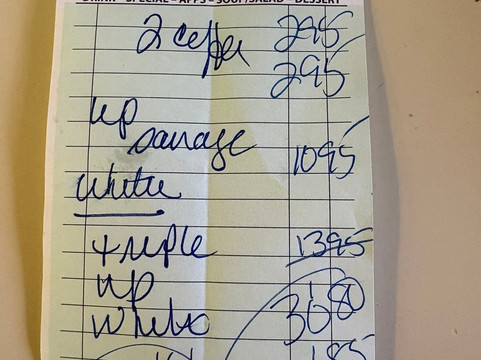 DRINK - SPECIAL - APPS - SOUP/SALAD - DESSERT
2 coffee 295
295
up
sausage 1095
White
triple 1395
up
White 3080
185